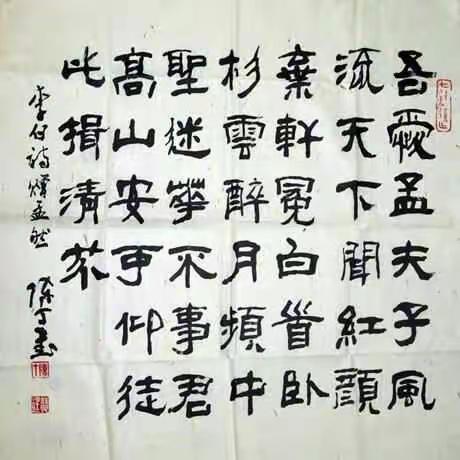 吾愛孟夫子風
流天下聞紅顏
棄軒冕白首卧
松雲醉月頻中
聖迷華不事君
高山安可仰徒
此揖清芬
李白詩贈孟然 書